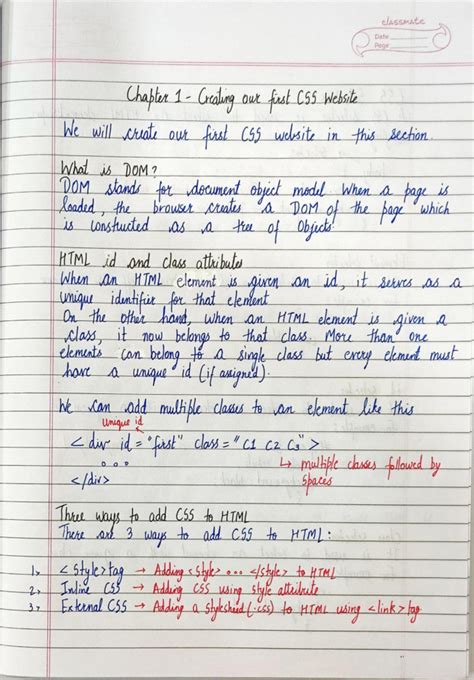 classmate
Date
Page
Chapter 1 - Creating our first CSS Website
We will create our first CSS website in this section.
What is DOM?
DOM stands for document object model. When a page is
loaded, the browser creates a DOM of the page which
is constructed as a tree of Objects.
HTML id and class attributes
When an HTML element is given an id, it serves as a
unique identifier for that element
On the other hand, when an HTML element is given a
class, it now belongs to that class. More than one
elements can belong to a single class but every element must
have a unique id (if assigned).
We can add multiple classes to an element like this
unique id
<div id = "first" class = "C1 C2 C3">
...
↳ multiple classes followed by
spaces
</div>
Three ways to add CSS to HTML
There are 3 ways to add CSS to HTML:
1> <style> tag → Adding <style> ... </style> to HTML
2> Inline CSS → Adding CSS using style attribute
3> External CSS → Adding a stylesheed (.css) to HTML using <link> tag